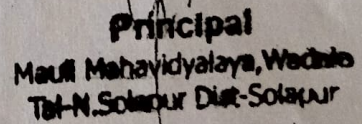 Principal
Mauli Mahavidyalaya, Wadala
Tal-N.Solapur Dist-Solapur